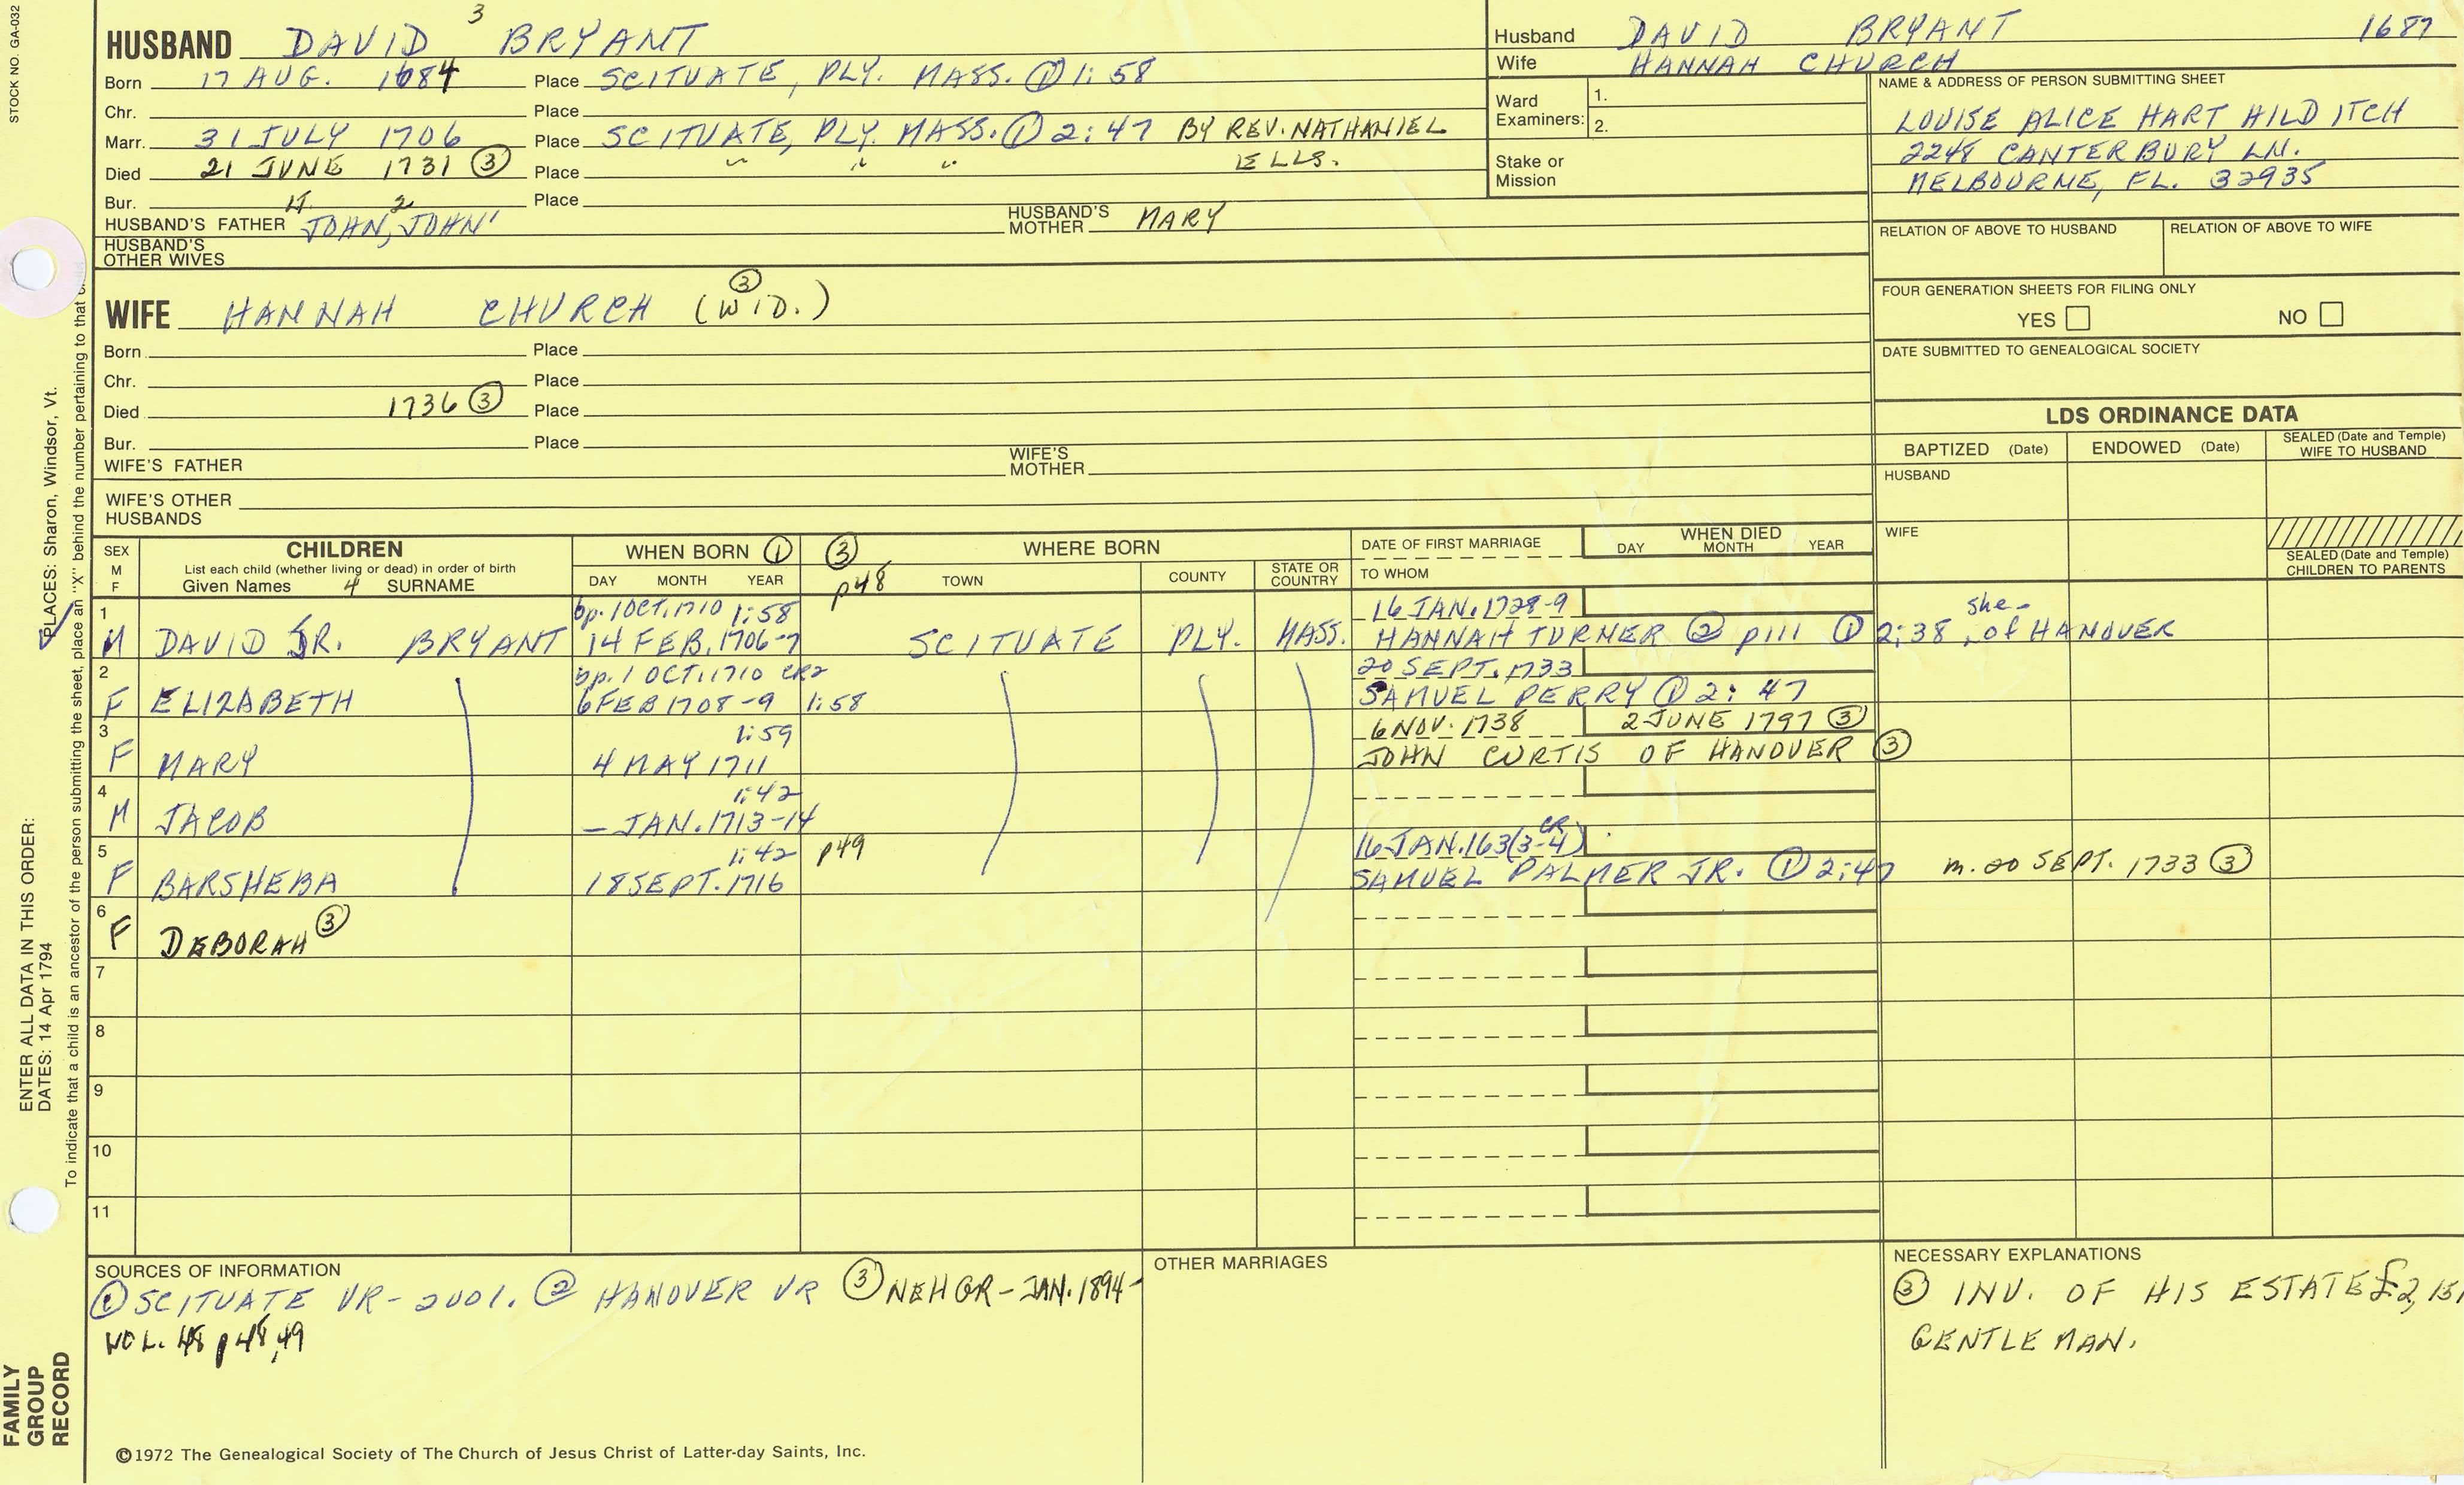 STOCK NO. GA-032
3
HUSBAND DAVID BRYANT
Born 17 AUG. 1684 Place SCITUATE, PLY. MASS. ① 1:58
Chr. Place
Marr. 31 JULY 1706 Place SCITUATE, PLY. MASS. ① 2:47 BY REV. NATHANIEL
Died 21 JUNE 1731 ③ Place " " " ELLS.
Bur. Place
HUSBAND'S FATHER JOHN, JOHN HUSBAND'S MOTHER MARY
HUSBAND'S OTHER WIVES
Husband DAVID BRYANT 1687
Wife HANNAH CHURCH
Ward Examiners: 1.
2.
Stake or Mission
NAME & ADDRESS OF PERSON SUBMITTING SHEET
LOUISE ALICE HART HILDITCH
2248 CANTERBURY LN.
MELBOURNE, FL. 32935
RELATION OF ABOVE TO HUSBAND RELATION OF ABOVE TO WIFE
FOUR GENERATION SHEETS FOR FILING ONLY
YES NO
DATE SUBMITTED TO GENEALOGICAL SOCIETY
③
WIFE HANNAH CHURCH (WID.)
Born Place
Chr. Place
Died 1736 ③ Place
Bur. Place
WIFE'S FATHER WIFE'S MOTHER
WIFE'S OTHER HUSBANDS
LDS ORDINANCE DATA
BAPTIZED (Date) ENDOWED (Date) SEALED (Date and Temple) WIFE TO HUSBAND
HUSBAND
WIFE
SEALED (Date and Temple) CHILDREN TO PARENTS
SEX M F
CHILDREN
List each child (whether living or dead) in order of birth
Given Names 4 SURNAME
WHEN BORN ①
DAY MONTH YEAR
③ p48 WHERE BORN
TOWN COUNTY STATE OR COUNTRY
DATE OF FIRST MARRIAGE
TO WHOM
WHEN DIED
DAY MONTH YEAR
1 bp. 1 OCT. 1710 1:58 16 JAN. 1728-9 she-
M DAVID JR. BRYANT 14 FEB. 1706-7 SCITUATE PLY. MASS. HANNAH TURNER ② p111 ① 2:38 of HANOVER
2 bp. 1 OCT. 1710 CR2 20 SEPT. 1733
F ELIZABETH 6 FEB 1708-9 1:58 SAMUEL PERRY ① 2:47
3 1:59 6 NOV. 1738 2 JUNE 1797 ③
F MARY 4 MAY 1711 JOHN CURTIS OF HANOVER ③
4 1:42
M JACOB – JAN. 1713-14
5 1:42 p49 16 JAN. 163(3-4) CR
F BARSHEBA 18 SEPT. 1716 SAMUEL PALMER JR. ① 2:47 m. 20 SEPT. 1733 ③
6
F DEBORAH ③
7
8
9
10
11
SOURCES OF INFORMATION
① SCITUATE VR - 2001. ② HANOVER VR ③ NEHGR - JAN. 1894 -
VOL. 48 p 48, 49
OTHER MARRIAGES
NECESSARY EXPLANATIONS
③ INV. OF HIS ESTATE
GENTLEMAN.
©1972 The Genealogical Society of The Church of Jesus Christ of Latter-day Saints, Inc.
FAMILY GROUP RECORD
ENTER ALL DATA IN THIS ORDER:
DATES: 14 Apr 1794
PLACES: Sharon, Windsor, Vt.
To indicate that a child is an ancestor of the person submitting the sheet, place an "X" behind the number pertaining to that